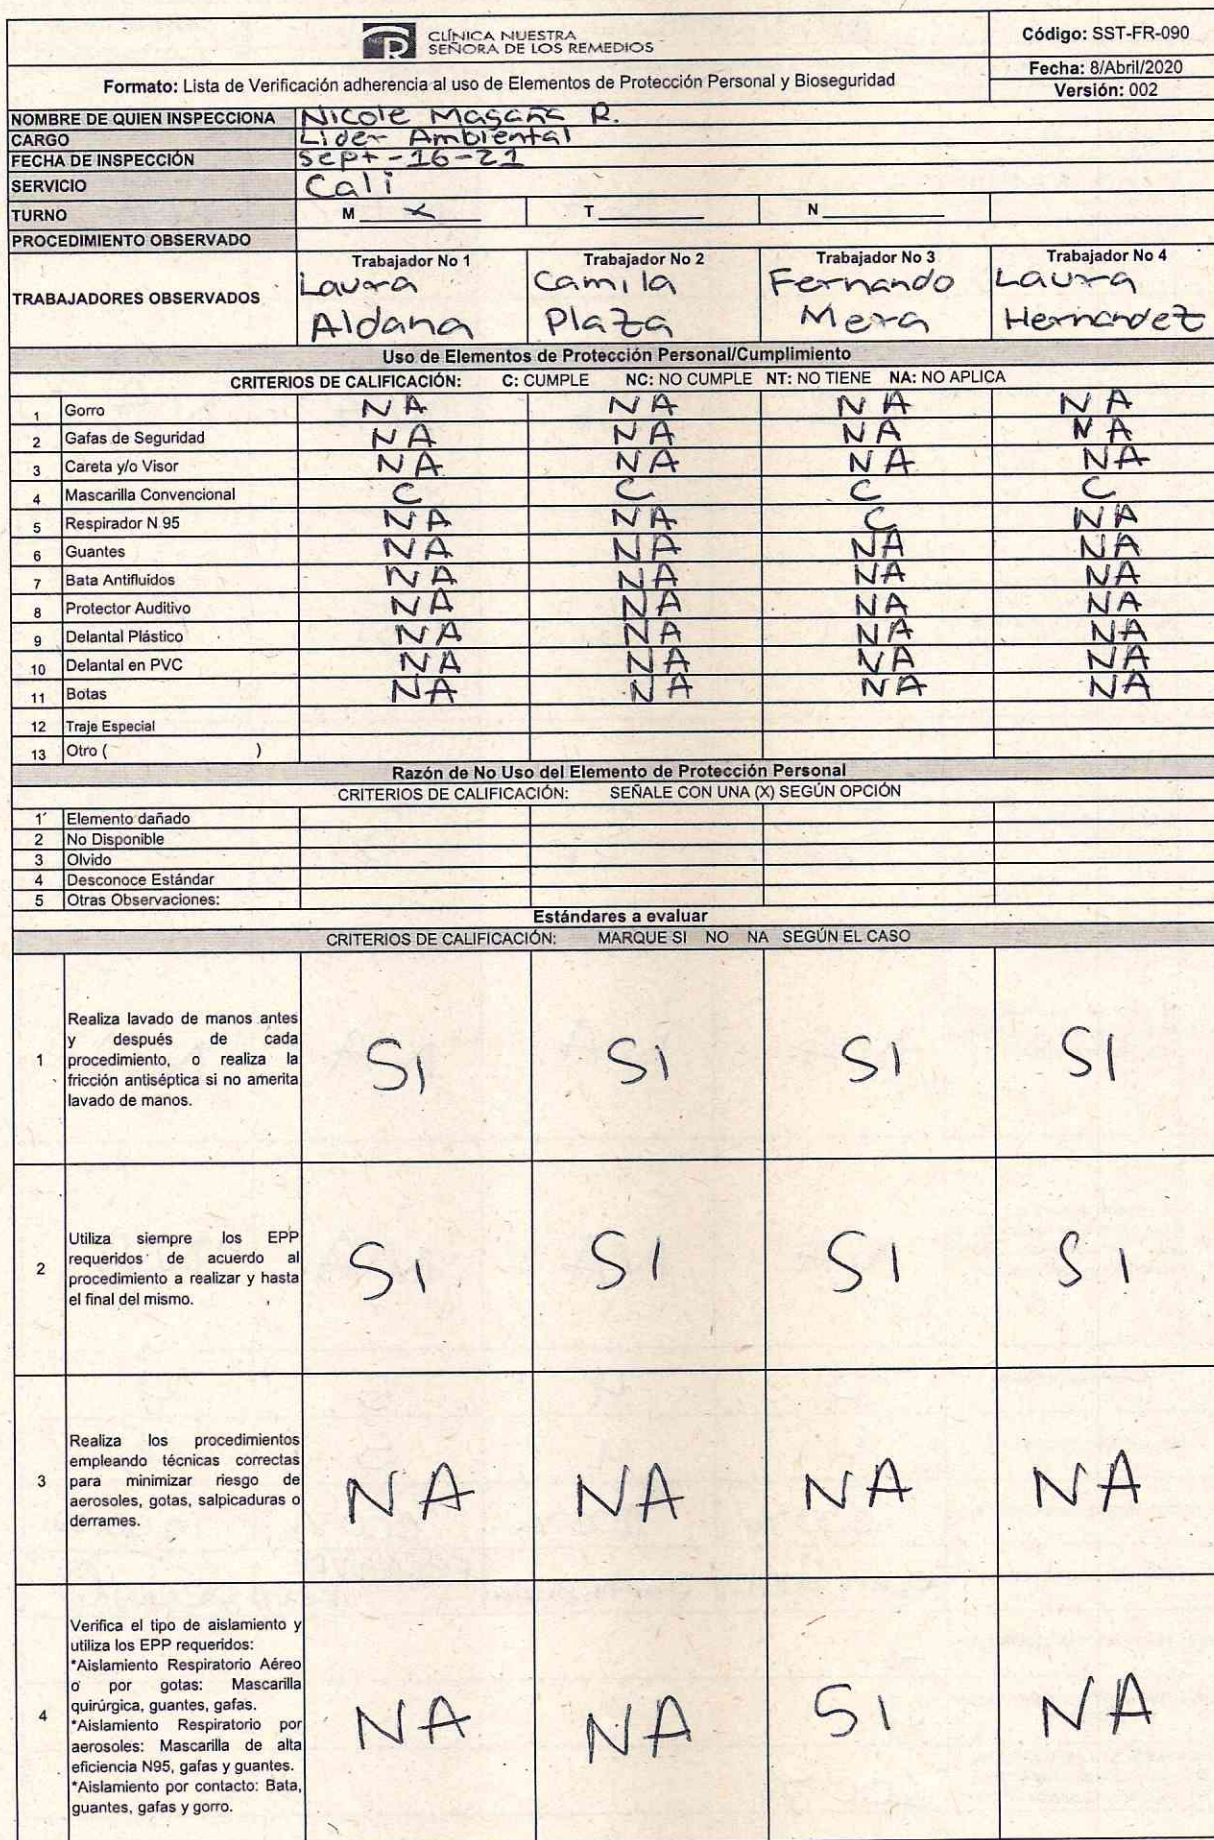 CLÍNICA NUESTRA
SEÑORA DE LOS REMEDIOS
Código: SST-FR-090
Formato: Lista de Verificación adherencia al uso de Elementos de Protección Personal y Bioseguridad
Fecha: 8/Abril/2020
Versión: 002
NOMBRE DE QUIEN INSPECCIONA Nicole Magaña R.
CARGO Lider Ambiental
FECHA DE INSPECCIÓN Sept-16-21
SERVICIO Cali
TURNO M X T N
PROCEDIMIENTO OBSERVADO
TRABAJADORES OBSERVADOS
Trabajador No 1 Trabajador No 2 Trabajador No 3 Trabajador No 4
Laura Camila Fernando Laura
Aldana Plaza Mera Hernandez
Uso de Elementos de Protección Personal/Cumplimiento
CRITERIOS DE CALIFICACIÓN: C: CUMPLE NC: NO CUMPLE NT: NO TIENE NA: NO APLICA
1 Gorro NA NA NA NA
2 Gafas de Seguridad NA NA NA NA
3 Careta y/o Visor NA NA NA NA
4 Mascarilla Convencional C C C C
5 Respirador N 95 NA NA C NA
6 Guantes NA NA NA NA
7 Bata Antifluidos NA NA NA NA
8 Protector Auditivo NA NA NA NA
9 Delantal Plástico NA NA NA NA
10 Delantal en PVC NA NA NA NA
11 Botas NA NA NA NA
12 Traje Especial
13 Otro ( )
Razón de No Uso del Elemento de Protección Personal
CRITERIOS DE CALIFICACIÓN: SEÑALE CON UNA (X) SEGÚN OPCIÓN
1 Elemento dañado
2 No Disponible
3 Olvido
4 Desconoce Estándar
5 Otras Observaciones:
Estándares a evaluar
CRITERIOS DE CALIFICACIÓN: MARQUE SI NO NA SEGÚN EL CASO
Realiza lavado de manos antes
y después de cada
1 procedimiento, o realiza la SI SI SI SI
fricción antiséptica si no amerita
lavado de manos.
Utiliza siempre los EPP
requeridos de acuerdo al
2 procedimiento a realizar y hasta SI SI SI SI
el final del mismo.
Realiza los procedimientos
empleando técnicas correctas
3 para minimizar riesgo de NA NA NA NA
aerosoles, gotas, salpicaduras o
derrames.
Verifica el tipo de aislamiento y
utiliza los EPP requeridos:
*Aislamiento Respiratorio Aéreo
o por gotas: Mascarilla
quirúrgica, guantes, gafas.
4 *Aislamiento Respiratorio por NA NA SI NA
aerosoles: Mascarilla de alta
eficiencia N95, gafas y guantes.
*Aislamiento por contacto: Bata,
guantes, gafas y gorro.